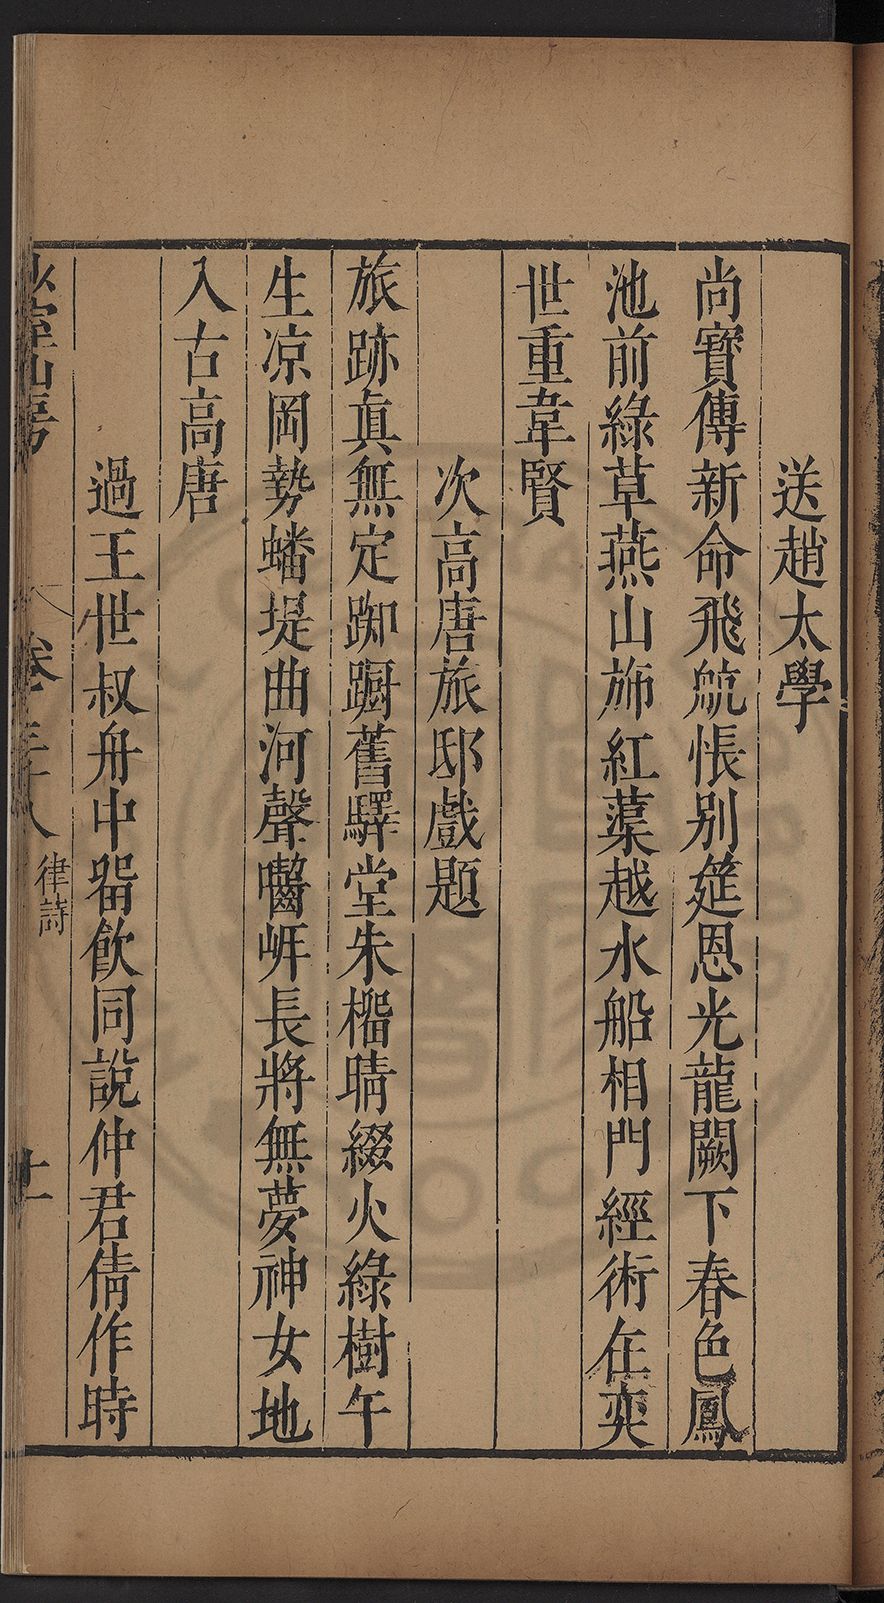 送趙太學
尚寶傳新命飛航悵别筵恩光龍闕下春色鳳
池前綠草燕山斾紅蕖越水船相門經術在奕
世重韋賢
次高唐旅邸戲題
旅跡眞無定踟躕舊驛堂朱橊晴綴火綠樹午
生凉岡勢蟠堤曲河聲嚙岍長將無夢神女地
入古高唐
過王世叔舟中畱飲同說仲君倩作時
室山房
卷三十八
律詩
十一